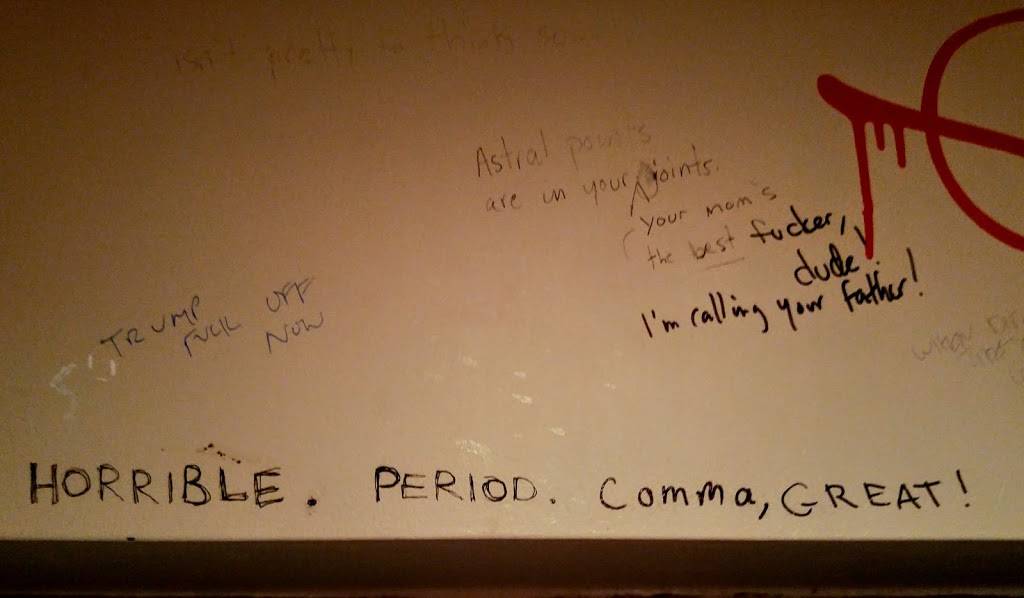 isn't pretty to think so...
Astral powers
are in your joints.
your mom's
the best fucker,
dude!
I'm calling your father!
TRUMP
FUCK OFF
NOW
HORRIBLE. PERIOD. Comma, GREAT!